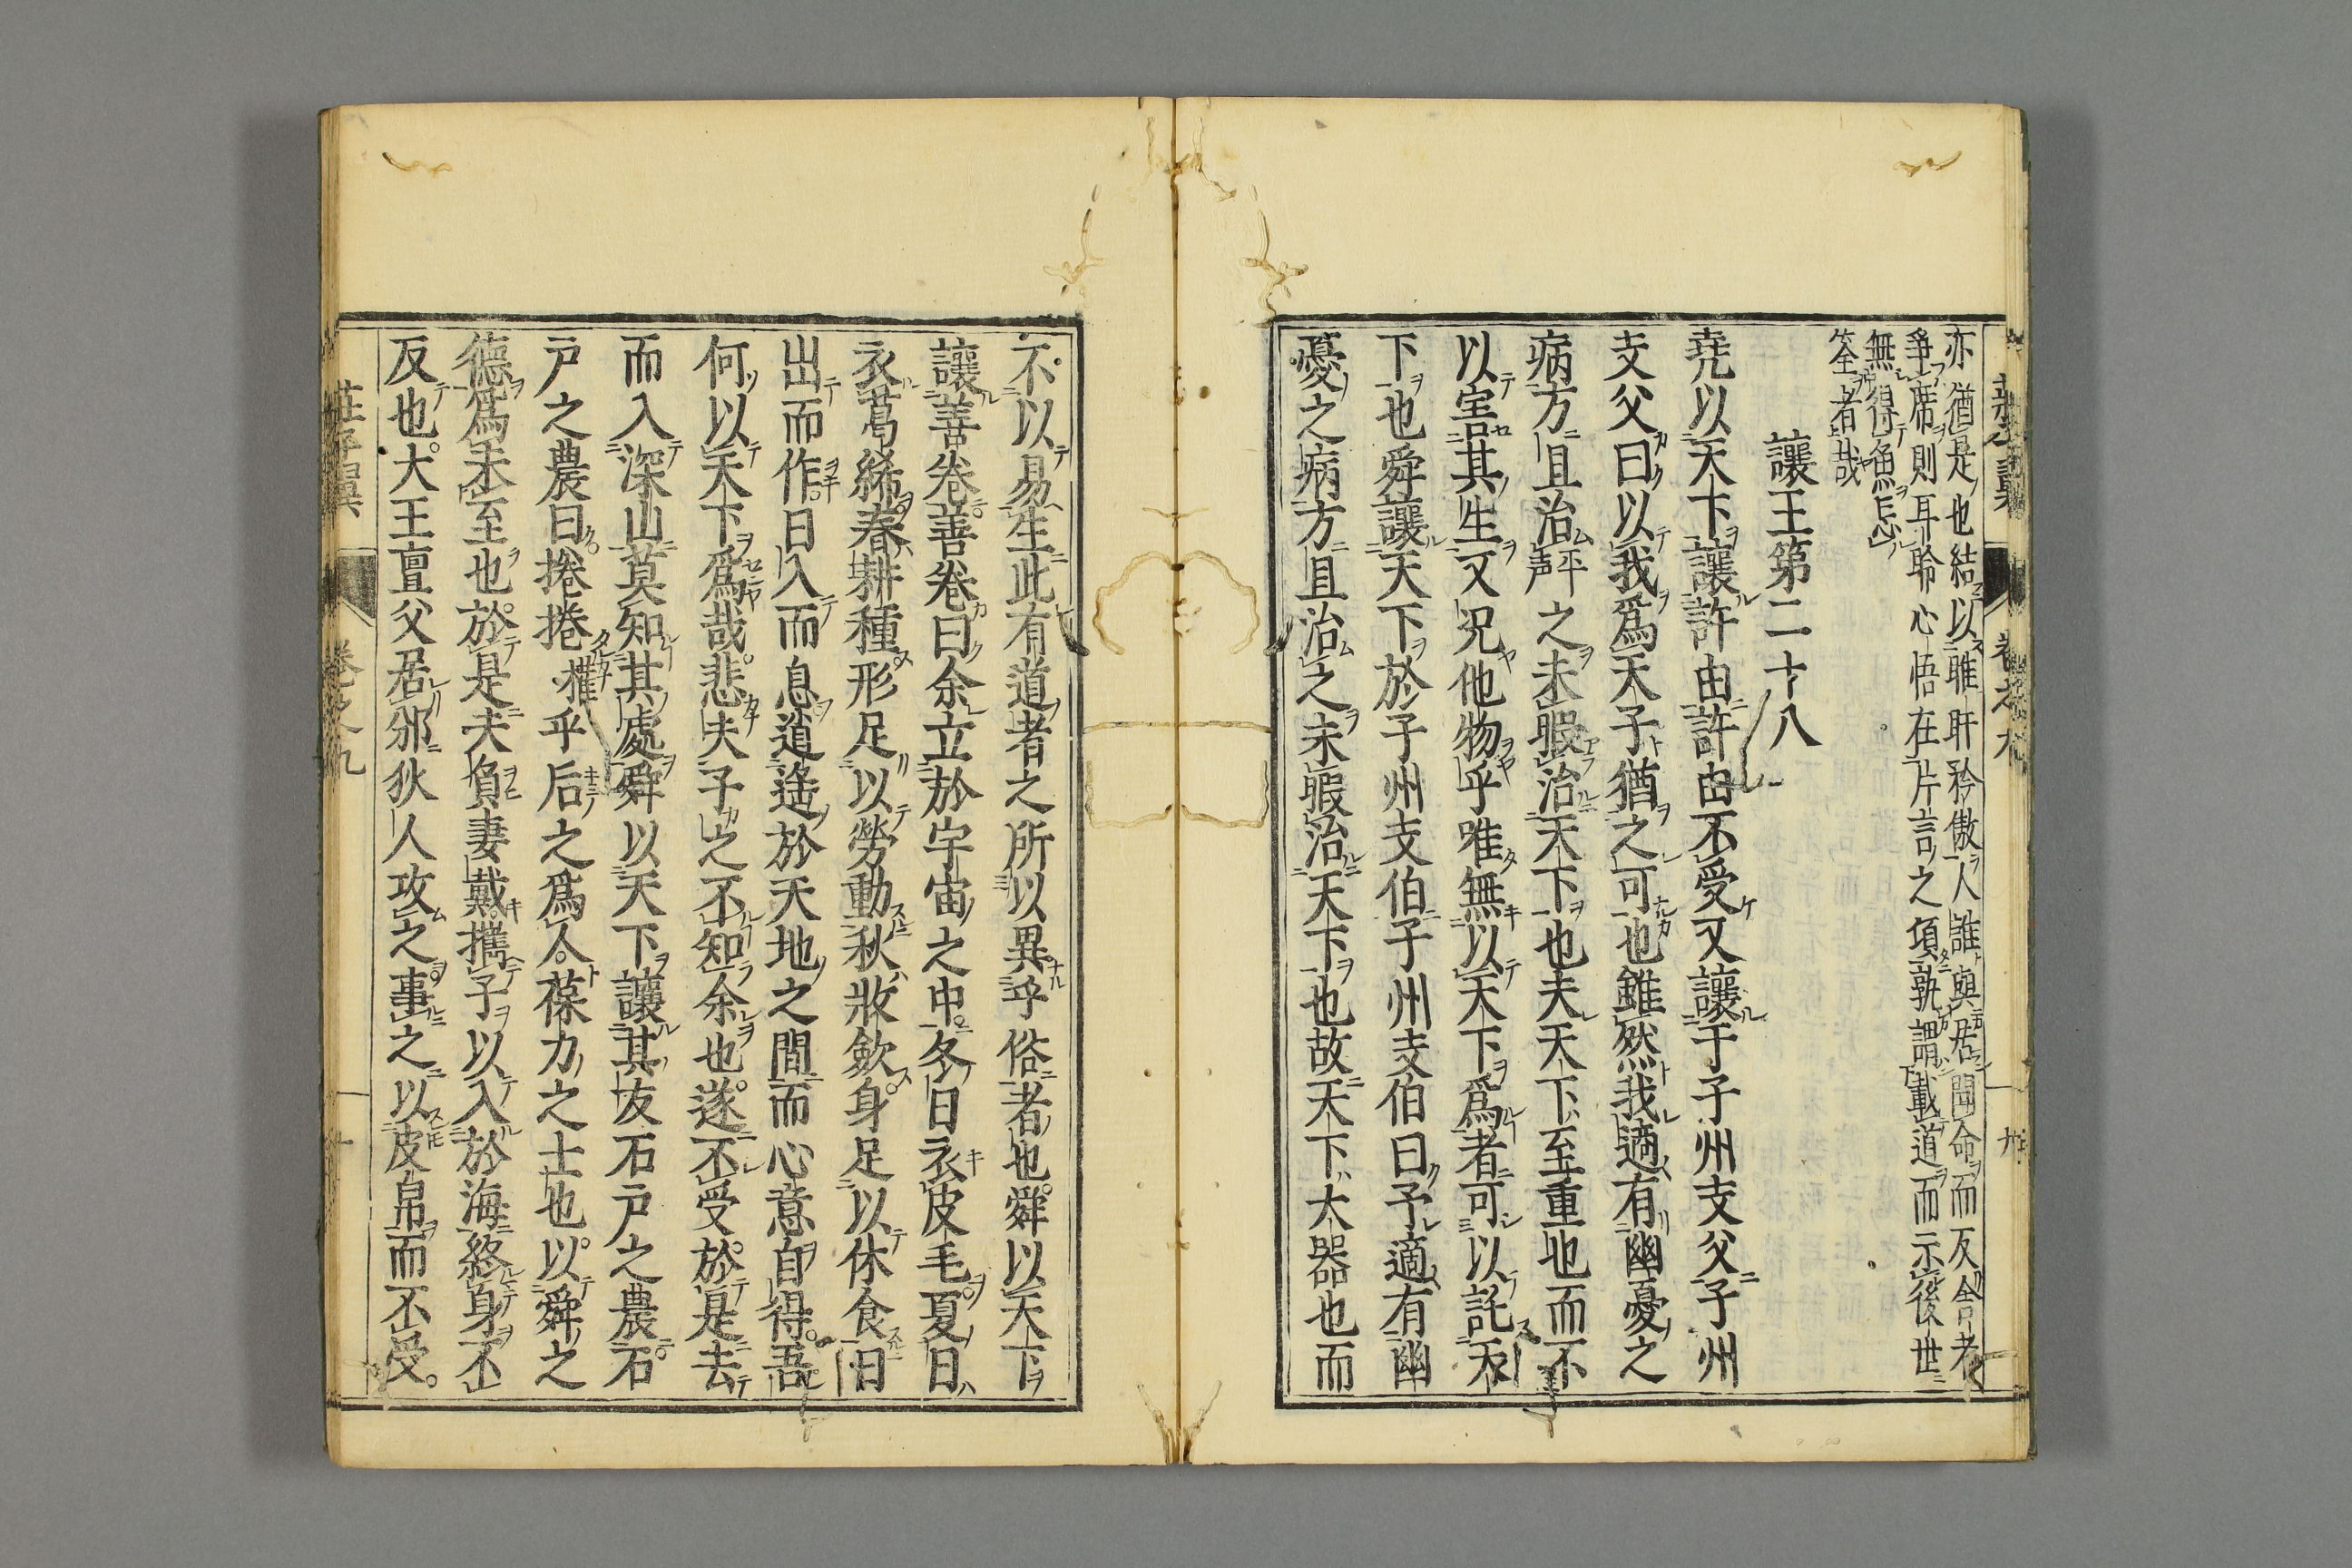 亦猶是也結以雎盱矜傲人誰與居聞命而反舍者
爭席則耳聆心悟在片言之頃孰謂載道而示後世
無得魚忘
筌者哉
讓王第二十八
尭以天下讓許由許由不受又讓于子州支父子州
支父曰以我爲天子猶之可也雖然我適有幽憂之
病方且治平声之未暇治天下也夫天下至重也而不
以害其生又况他物乎唯無以天下爲者可以託天
下也舜讓天下於子州支伯子州支伯曰予適有幽
憂之病方且治之未暇治天下也故天下大器也而
不以易生此有道者之所以異乎俗者也舜以天下
讓善卷善卷曰余立於宇宙之中冬日衣皮毛夏日
衣葛絺春耕種形足以勞動秋收歛身足以休食日
出而作日入而息逍遙於天地之間而心意自得吾
何以天下爲哉悲夫子之不知余也遂不受於是去
而入深山莫知其處舜以天下讓其友石戸之農石
戸之農曰捲捲權乎后之爲人葆力之士也以舜之
德爲未至也於是夫負妻戴攜子以入於海終身不
反也大王亶父居邠狄人攻之事之以皮帛而不受
莊子翼 卷之九 十